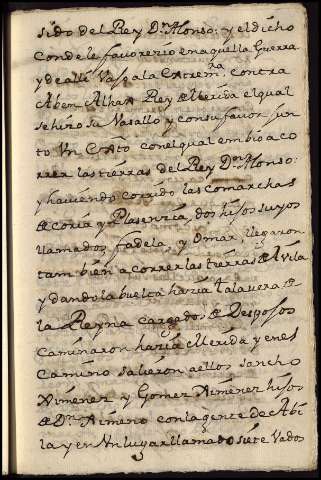 sido del Rey Dn. Alonso: y el dicho
Conde le favorezio en aquella Guerra
y de alli Vase a la Extrem.ra contra
Aben Alhax Rey de Merida el qual
se hizo su Vasallo y con su favor jun
to Un Exto con el qual embio a co
rrer las tierras del Rey Dn. Alonso:
y haviendo corrido las comarchas
de coria y Plasenzia, dos hijos suyos
llamados fadela, y Omar, llegaron
tambien a correr las tierras de Avila
y dando la buelta hazia Talavera de
la Reyna cargados de Despojos
Caminaron hazia Merida y en es
Camino salieron a ellos sancho
Ximenez y Gomez Ximenez hijos
de Dn. Ximeno con la gente de Abi
la y en Un lugar llamado siete Vados